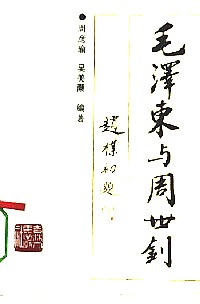 毛澤東与周世釗
趙樸初題
●周彦瑜 吴美潮 編著